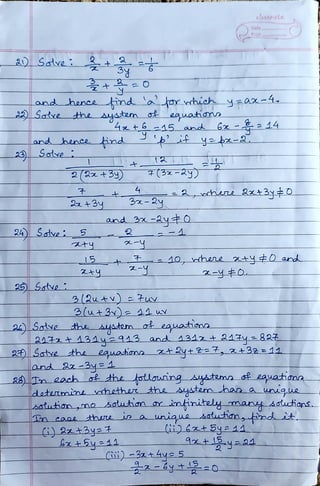 classmate
Date
Page
21) Solve : 2/x + 2/3y = 1/6
3/x + 2/y = 0
and hence find 'a' for which y = ax - 4.
22) Solve the system of equations
4x + 6/y = 15 and 6x - 8/y = 14
and hence find 'p' if y = px - 2.
23) Solve :
1/2(2x + 3y) + 12/7(3x - 2y) = 1/2
7/2x + 3y + 4/3x - 2y = 2, where 2x + 3y ≠ 0
and 3x - 2y ≠ 0
24) Solve : 5/x+y - 2/x-y = -1
15/x+y + 7/x-y = 10, where x+y ≠ 0 and
x-y ≠ 0.
25) Solve :
3(2u+v) = 7uv
3(u+3v) = 11 uv
26) Solve the system of equations
217x + 131y = 913 and 131x + 217y = 827
27) Solve the equations x + 2y + z = 7, x + 3z = 11
and 2x - 3y = 1
28) In each of the following systems of equations
determine whether the system has a unique
solution, no solution or infinitely many solutions.
In case there is a unique solution, find it.
(i) 2x + 3y = 7 (ii) 6x + 5y = 11
6x + 5y = 11 9x + 15/2 y = 21
(iii) -3x + 4y = 5
9/2 x - 6y + 15/2 = 0